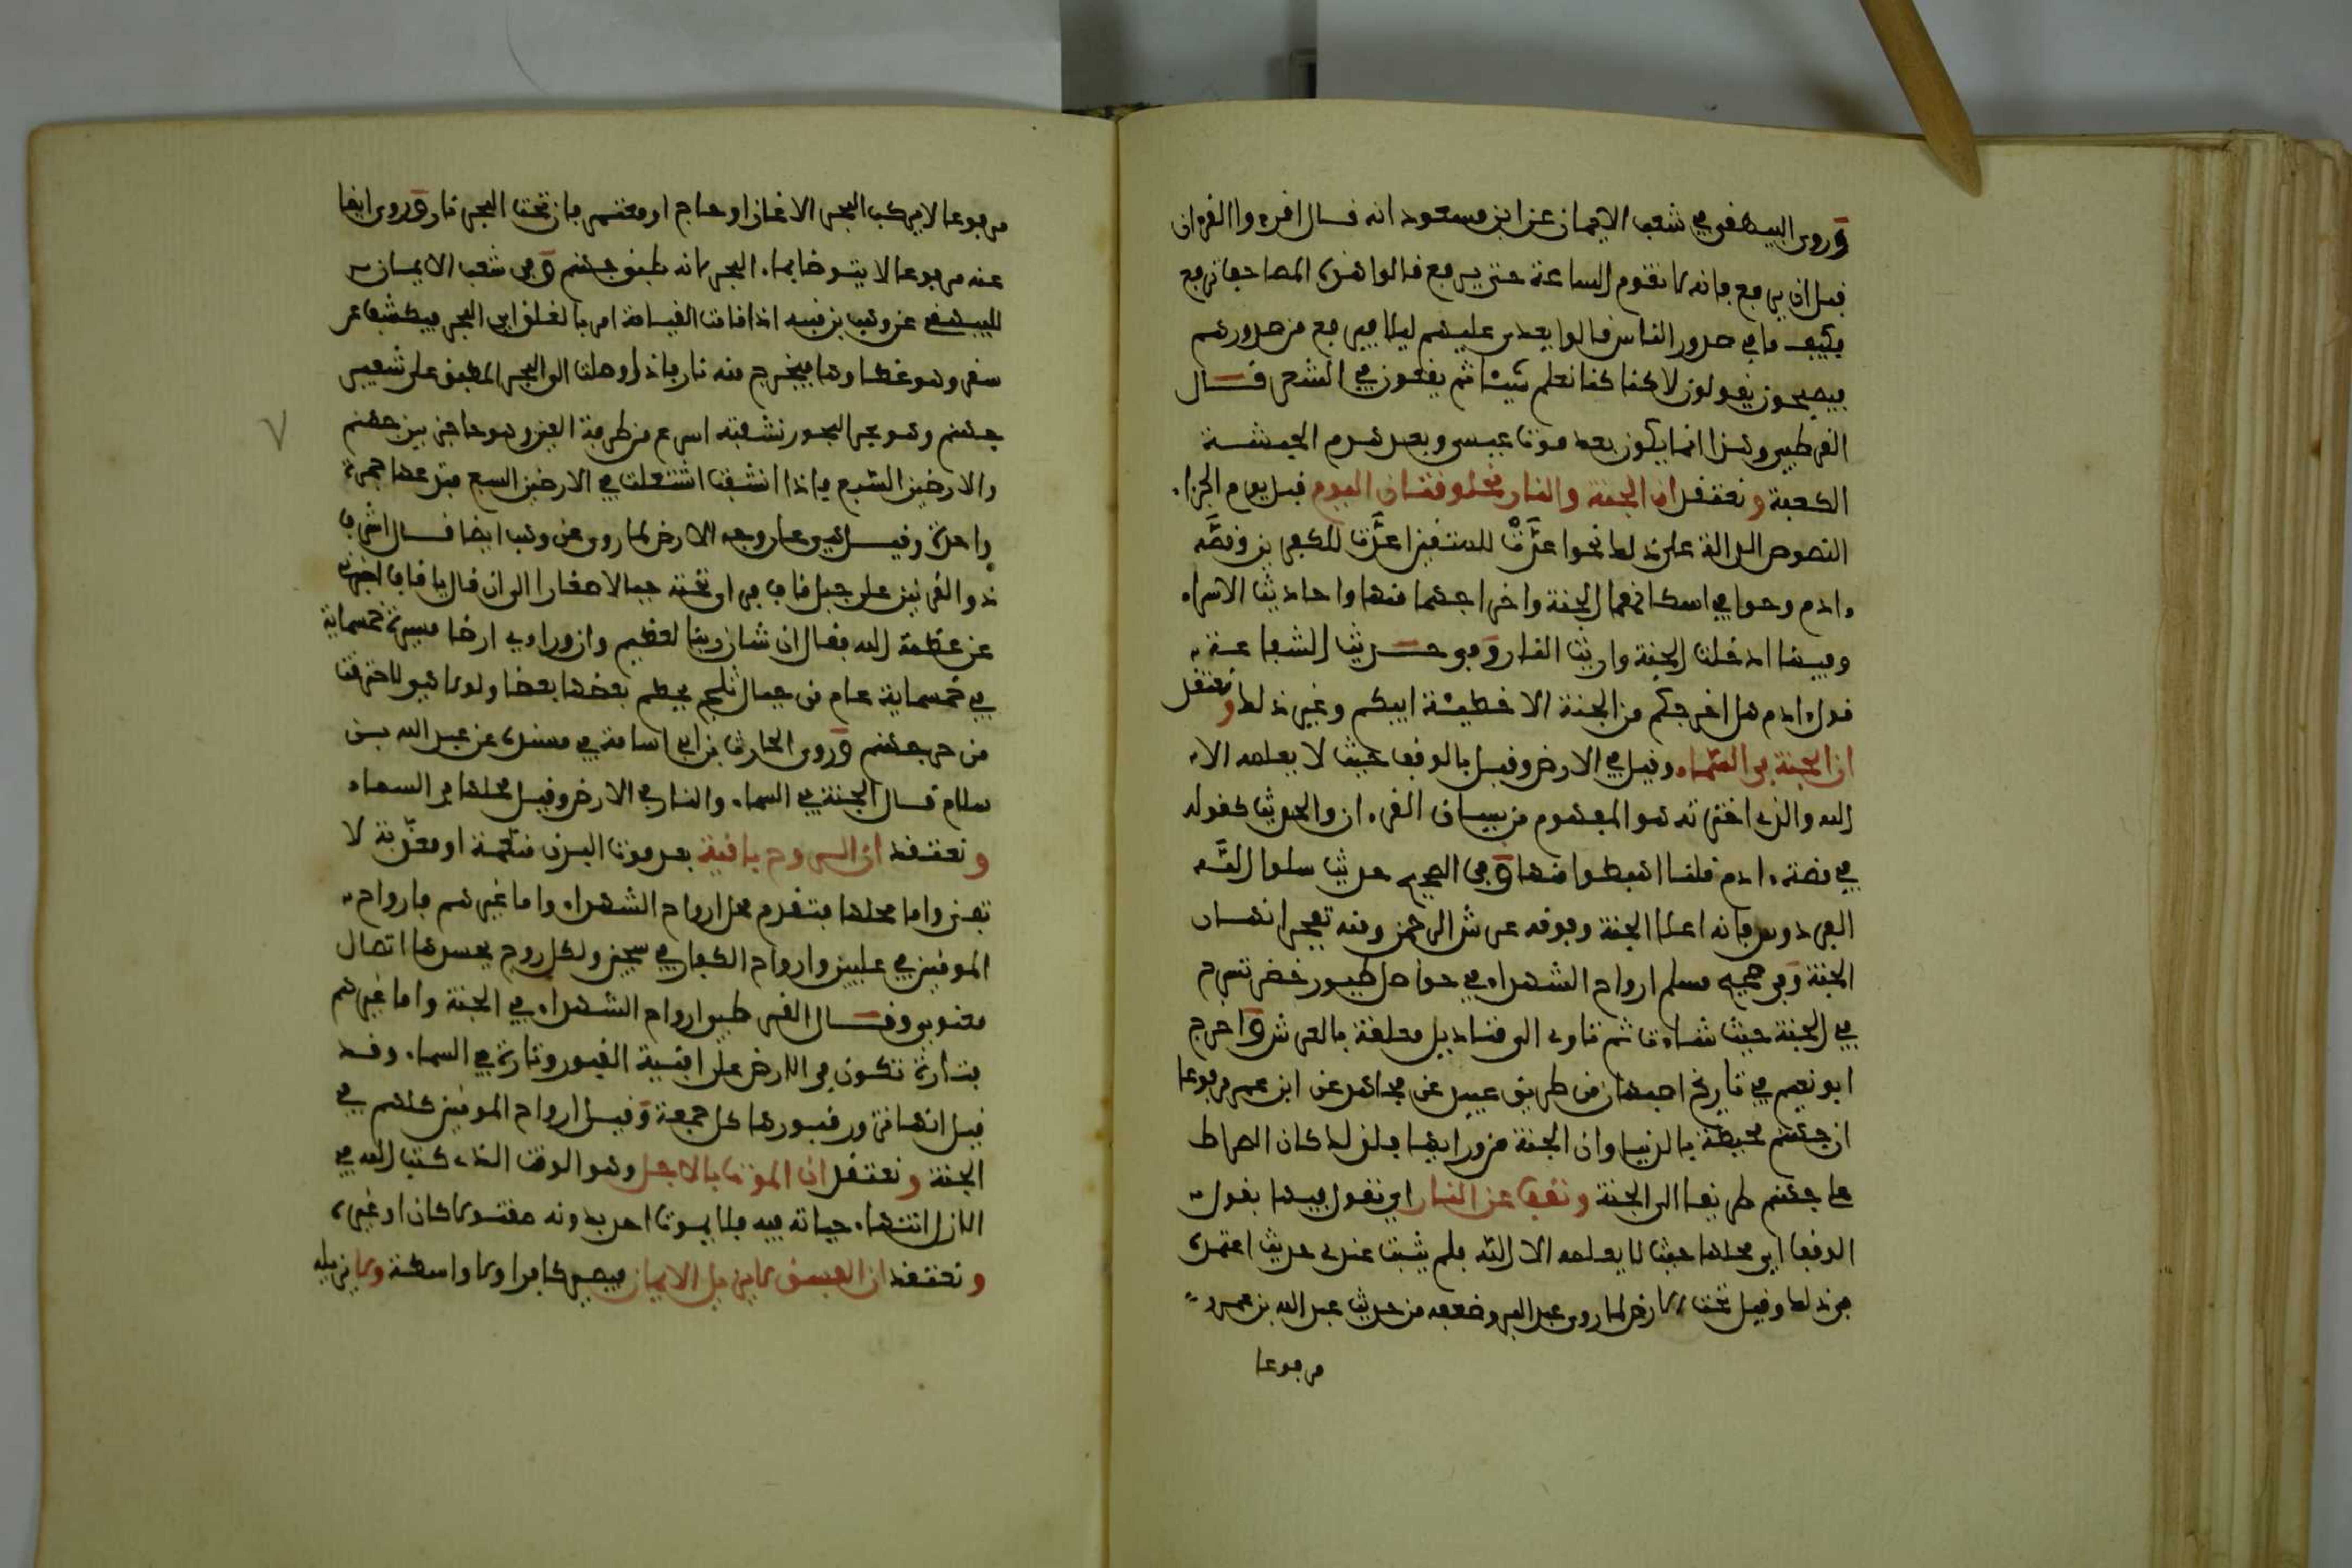 وروى البيهقي في شعب الايمان عن ابن مسعود انه قال اقرءوا القرءان
قبل ان يرفع فانه لا تقوم الساعة حتى يرفع قالوا هذه المصاحف ترفع
فكيف ما في صدور الناس قالوا يعدى عليهم ليلا فيرفع من صدورهم
فيصبحون يقولون لاكنا كنا نعلم شيئا ثم يقعون في الشعر قال
القرطبي وهذا انما يكون بعد موت عيسى وبعد هدم الحبشة
الكعبة ونعتقد ان الجنة والنار مخلوقتان اليوم قبل يوم الجزاء
النصوص الدالة على ذلك نحو اعدت للمتقين اعدت للكفرين وقصة
ءادم وحوا في اسكانهما الجنة واخراجهما منها واحاديث الاسراء
وفيها ادخلت الجنة واريت النار وفي حديث الشفاعة
قول ءادم هل اخرجكم من الجنة الا خطيئة ابيكم وغير ذلك ونعتقد
ان الجنة في السماء وقيل في الارض وقيل بالوقف حيث لا يعلمه الا
الله والذي اخترته هو المفهوم من سياق القرءان والحديث كقوله
في قصة ءادم قلنا اهبطوا منها وفي الصحيح حديث سلوا الله
الفردوس فانه اعلا الجنة وفوقه عرش الرحمن ومنه تفجر انهار
الجنة وفي صحيح مسلم ارواح الشهداء في حواصل طيور خضر تسرح
في الجنة حيث شاءت ثم تاوي الى قناديل معلقة بالعرش واخرج
ابو نعيم في تاريخ اصبهان من طريق عبيد عن مجاهد عن ابن عمر مرفوعا
ان جهنم محيطة بالدنيا وان الجنة من ورايها فلذلك كان الصراط
على جهنم طريقا الى الجنة ونقف عن النار اي نقول فيها بقول
الوقف اي محلها حيث لا يعلمه الا الله فلم يثبت عندي حديث اعتمده
في ذلك وقيل تحت الارض لما روى عبد البر وضعفه من حديث عبد الله بن عمرو
مرفوعا
مرفوعا لا يركب البحر الا غاز او حاج او معتمر فان تحت البحر نار وروى ايضا
عنه مرفوعا لا يتوضا بماء البحر لانه طبق جهنم وفي شعب الايمان
للبيهقي عن وهب بن منبه اذا قامت القيامة امر بالفلق اي البحر فيكشف عن
سقر وهو غطاوها فيخرج منه نار فاذا وصلت الى البحر المطبق على شفير
جهنم وهو بحر البحور نشفته اسرع من طرفة العين وهو حاجز بين جهنم
والارضين السبع فاذا انشفت اشتعلت في الارضين السبع فتدعها جمرة
واحدة وقيل هي على وجه الارض لما روى عن وهب ايضا قال اشرف
ذو القرنين على جبل قاف فراى تحته جبالا صغارا الى ان قال يا قاف اخبرني
عن عظمة الله فقال ان شان ربنا لعظيم وان وراءي ارضا مسيرة خمسماية
في خمسماية عام من جبال ثلج يحطم بعضها بعضا ولولا هي لاحترقت
من حر جهنم وروى الحارث بن ابي اسامة في مسنده عن عبد الله بن
سلام قال الجنة في السماء والنار في الارض وقيل محلها في السماء
ونعتقد ان الروح باقية بعد موت البدن منعمة او معذبة لا
تفنى واما محلها فتقدم محل ارواح الشهداء واما غيرهم فارواح
المومنين في عليين وارواح الكفار في سجين ولكل روح بجسدها اتصال
معنوي وقال القرطبي ارواح الشهداء في الجنة واما غيرهم
فتارة تكون في الارض على افنية القبور وتارة في السماء وقد
قيل انها تزور قبورها كل جمعة وقيل ارواح المومنين كلهم في
الجنة ونعتقد ان الموت بالاجل وهو الوقت الذي كتب الله في
الازل انتهاء حياته فيه فلا يموت احد بدونه مقتولا كان او غيره
ونعتقد ان الفسق لا يزيل الايمان فيصير كافرا ولا واسطة ولا نزيله